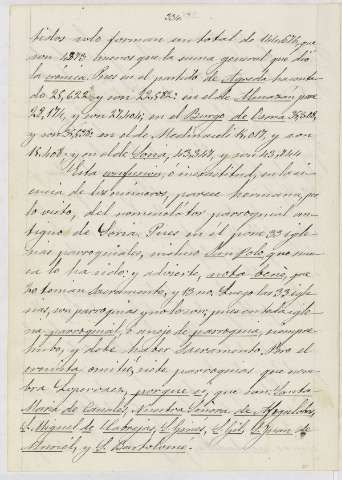 334
tidos solo forman un total de 144.676, que
son 4273 menos que la suma general que dió
la crónica. Pues en el partido de Agreda ha conta-
do 25,628 y son 22.582: en el de Almazán pone
22,174, y son 27.404: en el Burgo de Osma
y son en el de Medinaceli 15,017, y son
15.408: y en el de Soria, 43,347, y son 43,844
Esta confusion, ó inexactitud, en la ci-
encia de los números, parece hermana, por
lo visto, del nomenclátor parroquial an-
tiguo de Soria. Pues en el pone 33 igle-
sias parroquiales, incluso San Polo, que nun-
ca lo ha sido; y advierte, nota bene, que
20 tenian Sacramento, y 13 no. Luego las 33 igle-
sias, son parroquias y no lo son; pues en toda igle-
sia parroquial, ó anejo de parroquia, siempre
hubo, y debe haber Sacramento. Pero el
cronista omite siete parroquias que nom-
bra Loperraez, porque si, que son Santa
Maria de Canales, Nuestra Señora de
S. Miguel de Cabrejas, S. Ginés, S. Gil, S. Juan de
Muriel, y S. Bartolomé.